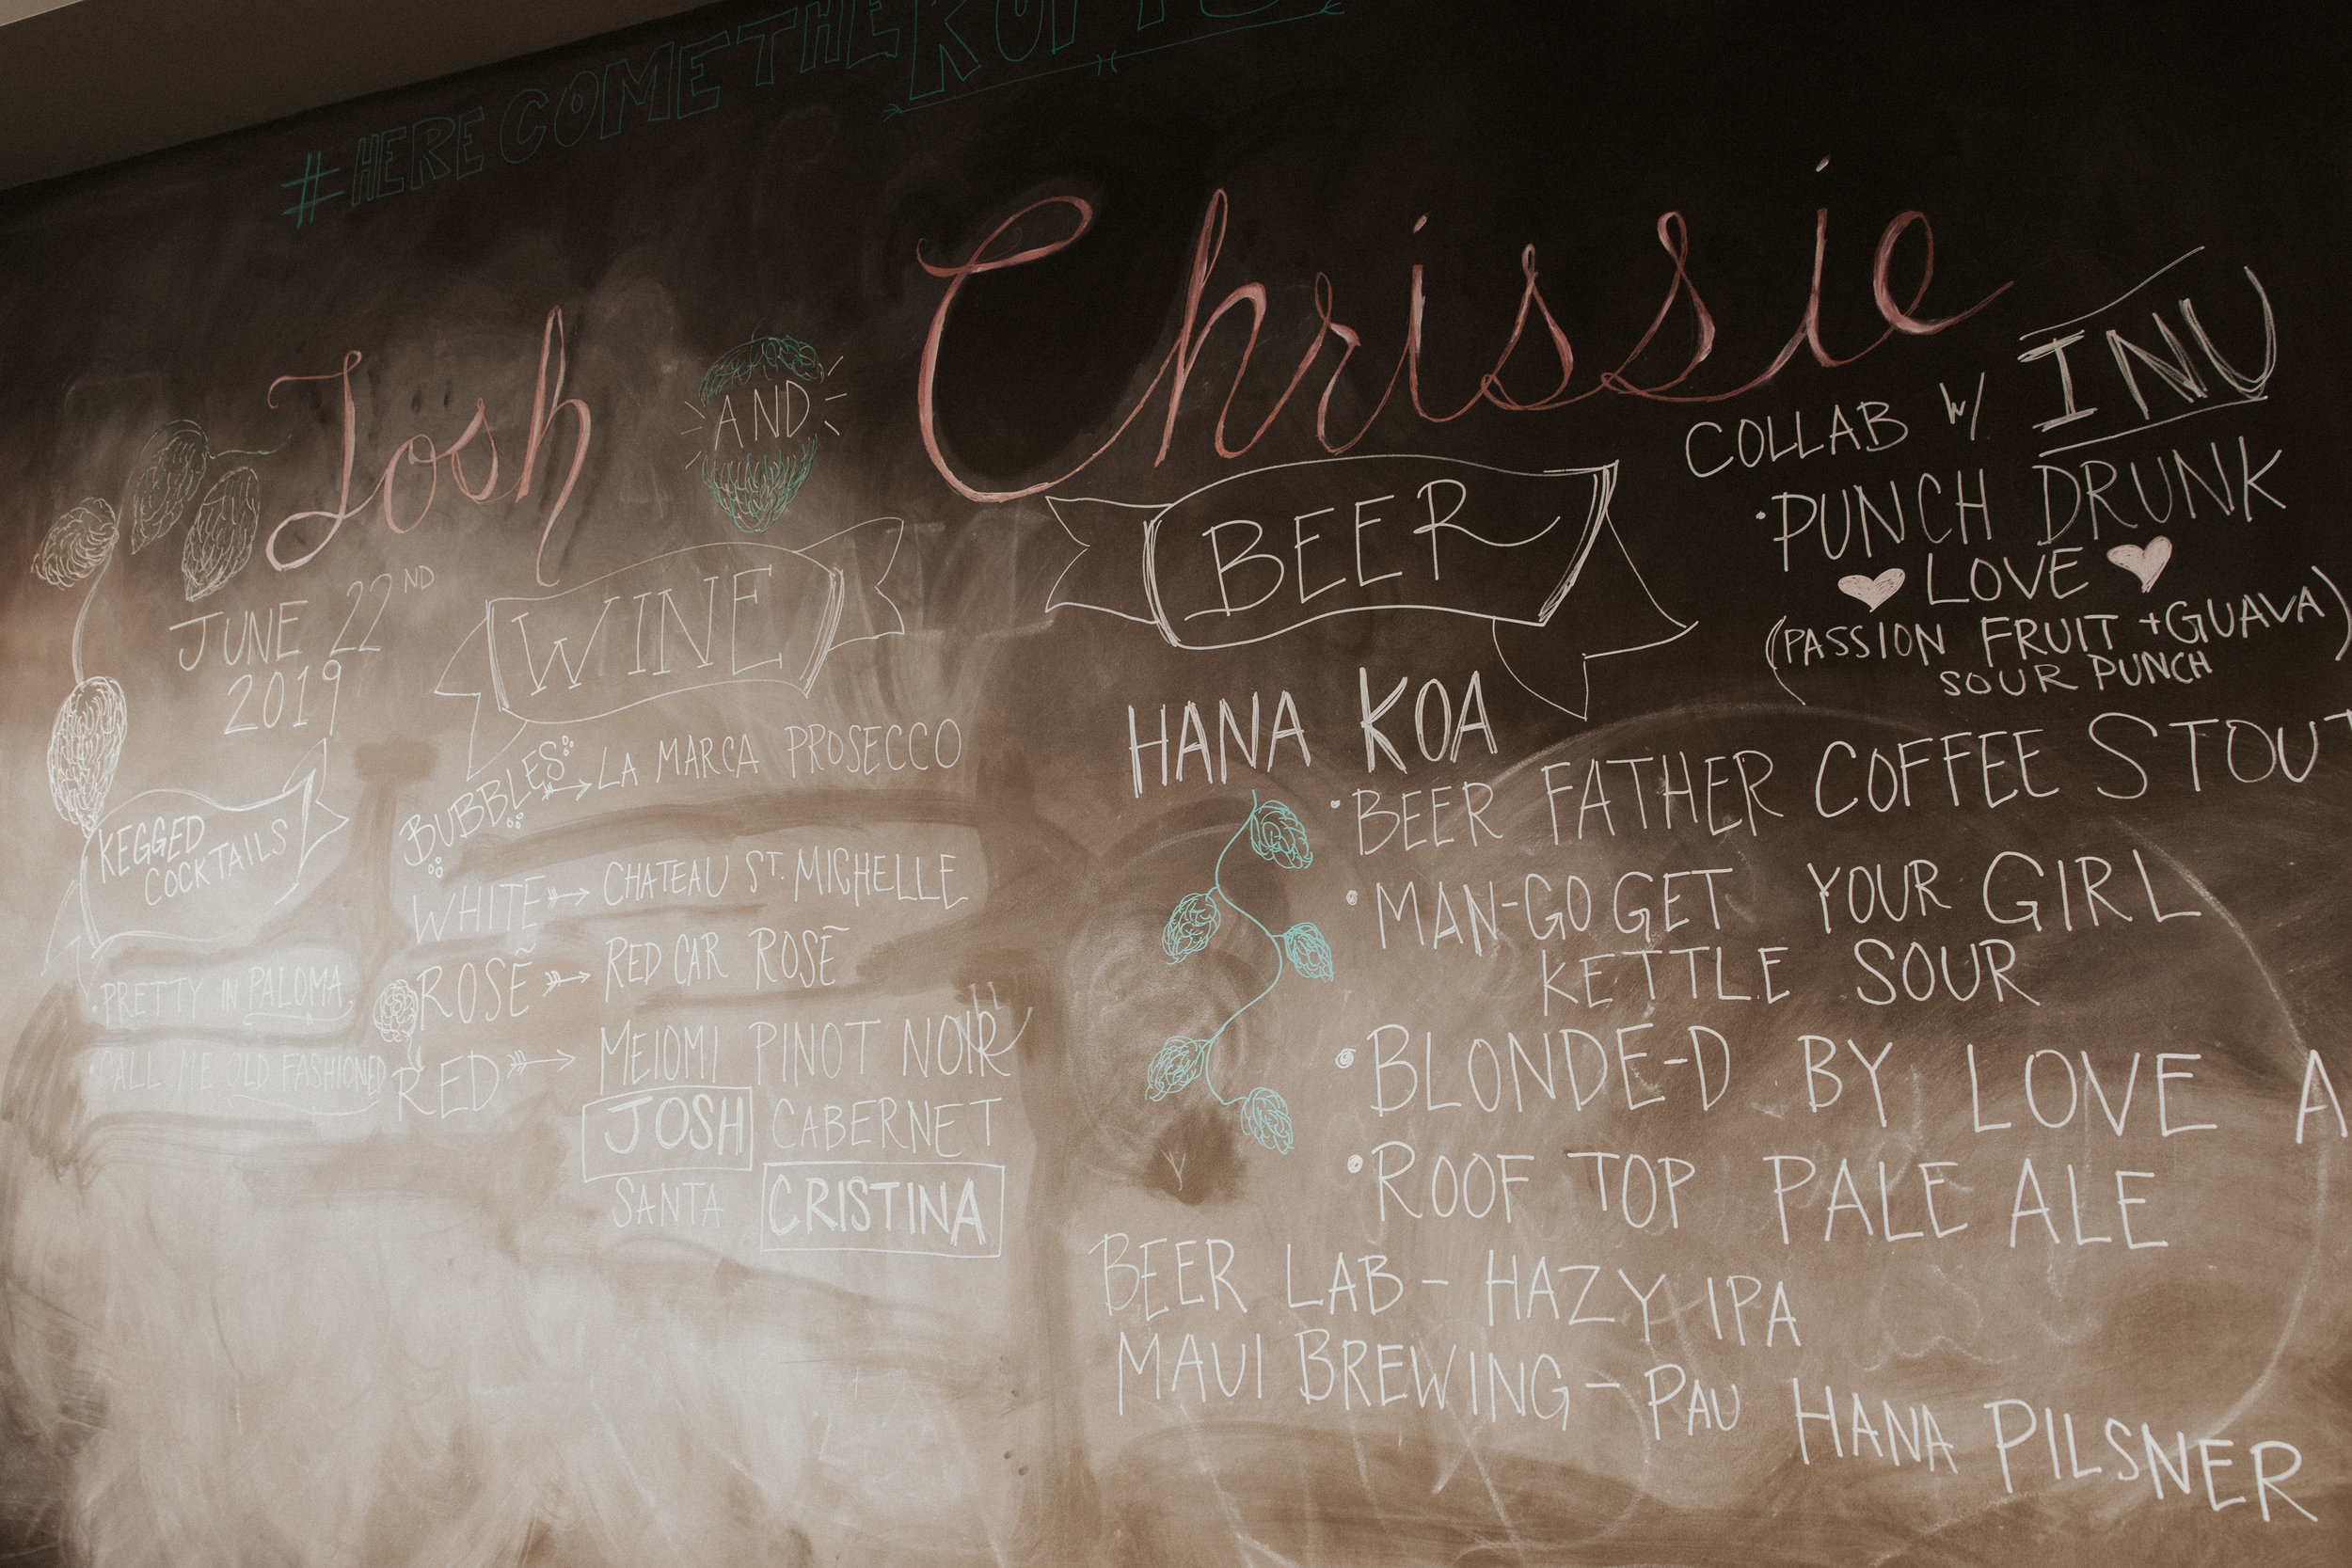 #HERE COME THE
Josh AND Chrissie
JUNE 22ND
2019
KEGGED
COCKTAILS
• PRETTY IN PALOMA
• CALL ME OLD FASHIONED
WINE
BUBBLES → LA MARCA PROSECCO
WHITE → CHATEAU ST. MICHELLE
ROSÉ → RED CAR ROSÉ
RED → MEIOMI PINOT NOIR
JOSH CABERNET
SANTA CRISTINA
BEER
HANA KOA
• BEER FATHER COFFEE STOUT
• MAN-GO GET YOUR GIRL
KETTLE SOUR
• BLONDE-D BY LOVE A
• ROOF TOP PALE ALE
BEER LAB - HAZY IPA
MAUI BREWING - PAU HANA PILSNER
COLLAB W/ INU
• PUNCH DRUNK
♥ LOVE ♥
(PASSION FRUIT + GUAVA)
SOUR PUNCH